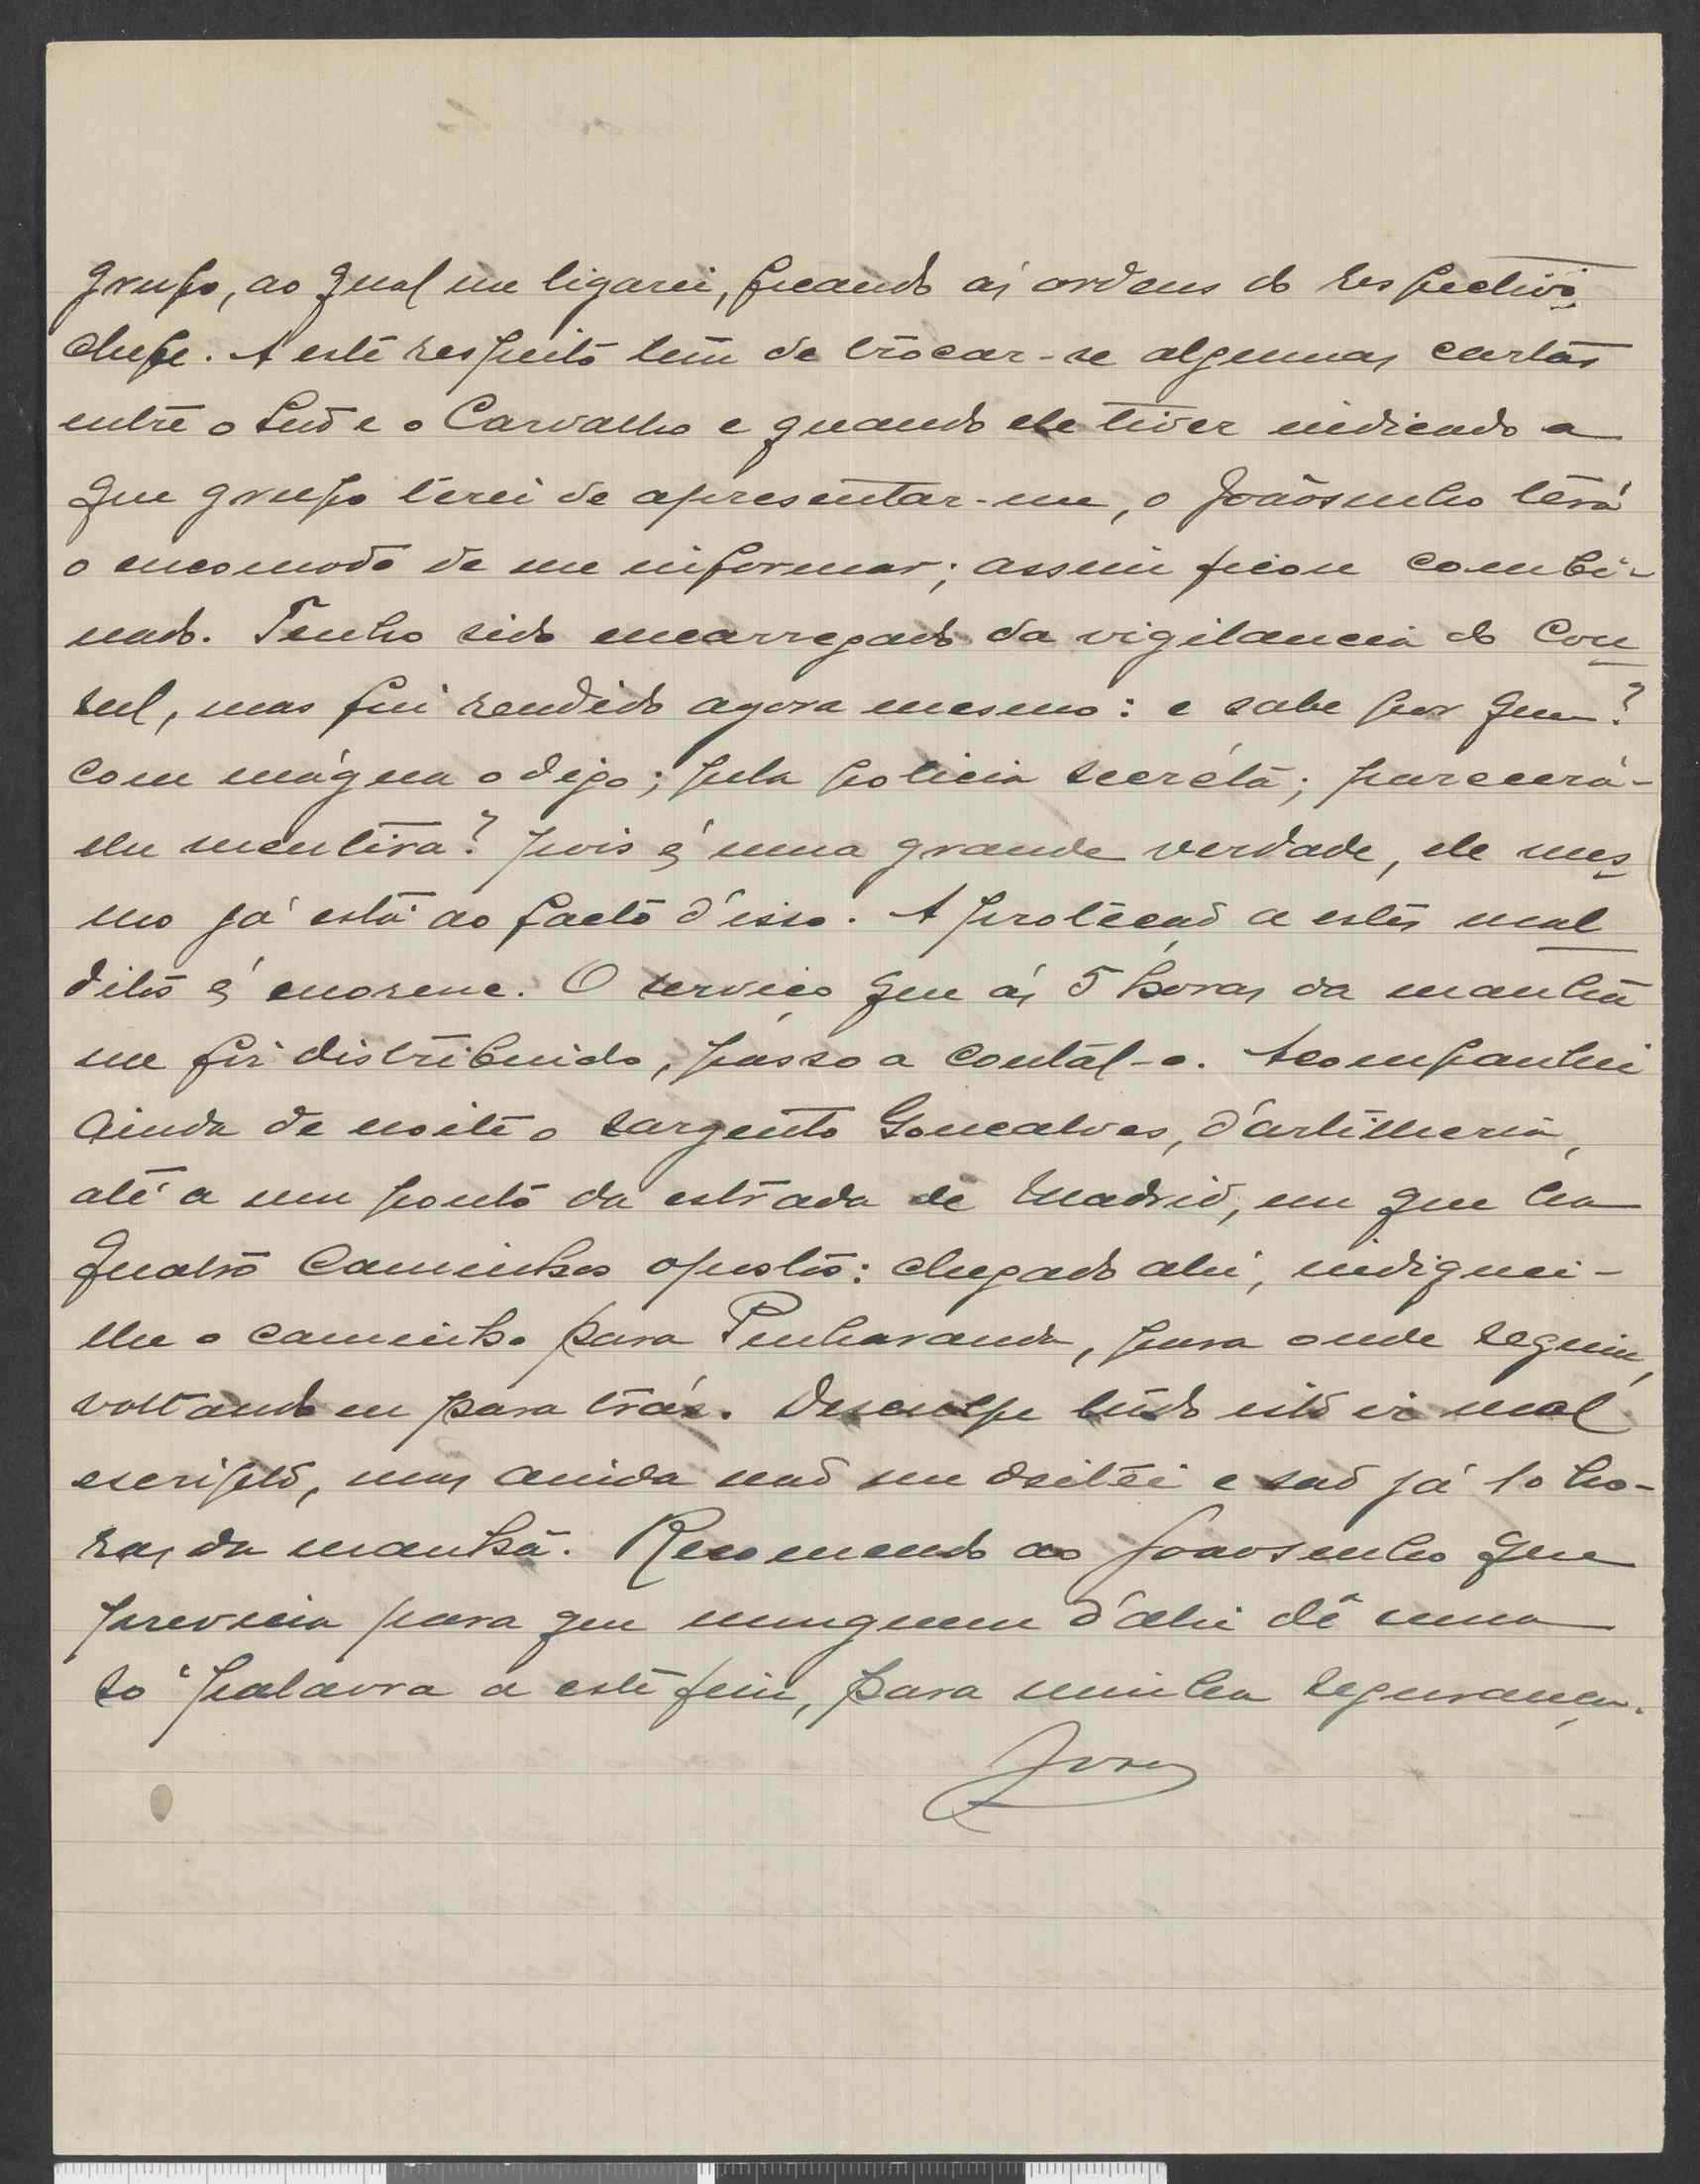 grupo, ao qual me ligarei, ficando ás ordens do respectivo
chefe. A este respeito tem de trocar-se algumas cartas
entre o Lud e o Carvalho e quando ele tiver indicado a
que grupo terei de apresentar-me, o Joãosinho terá
o encomodo de me informar; assim ficou combi-
nado. Tenho sido encarregado da vigilancia do Con
sul, mas fui rendido agora mesmo: e sabe por quem?
Com mágua o digo; pela policia secréta; parecerá-
lhe mentira? pois é uma grande verdade, ele mes
mo já está ao facto d'isso. A proteção a estes mal
ditos é enorme. O serviço que ás 5 horas da manhã
me foi distribuido, passo a contal-o. Acompanhei
ainda de noite o sargento Gonçalves, d'artilheria,
até a um ponto da estrada de Madrid, em que ha
quatro caminhos opostos: chegado ahi, indiquei-
lhe o caminho para Penharanda, para onde seguiu,
voltando eu para tráz. Desculpe tudo isto ir mal
escripto, mas ainda não me deitei e são já 10 ho-
ras da manhã. Recomendo ao Joãosinho que
previna para que ninguem d'ahi dê uma
só palavra a este fim, para minha segurança.